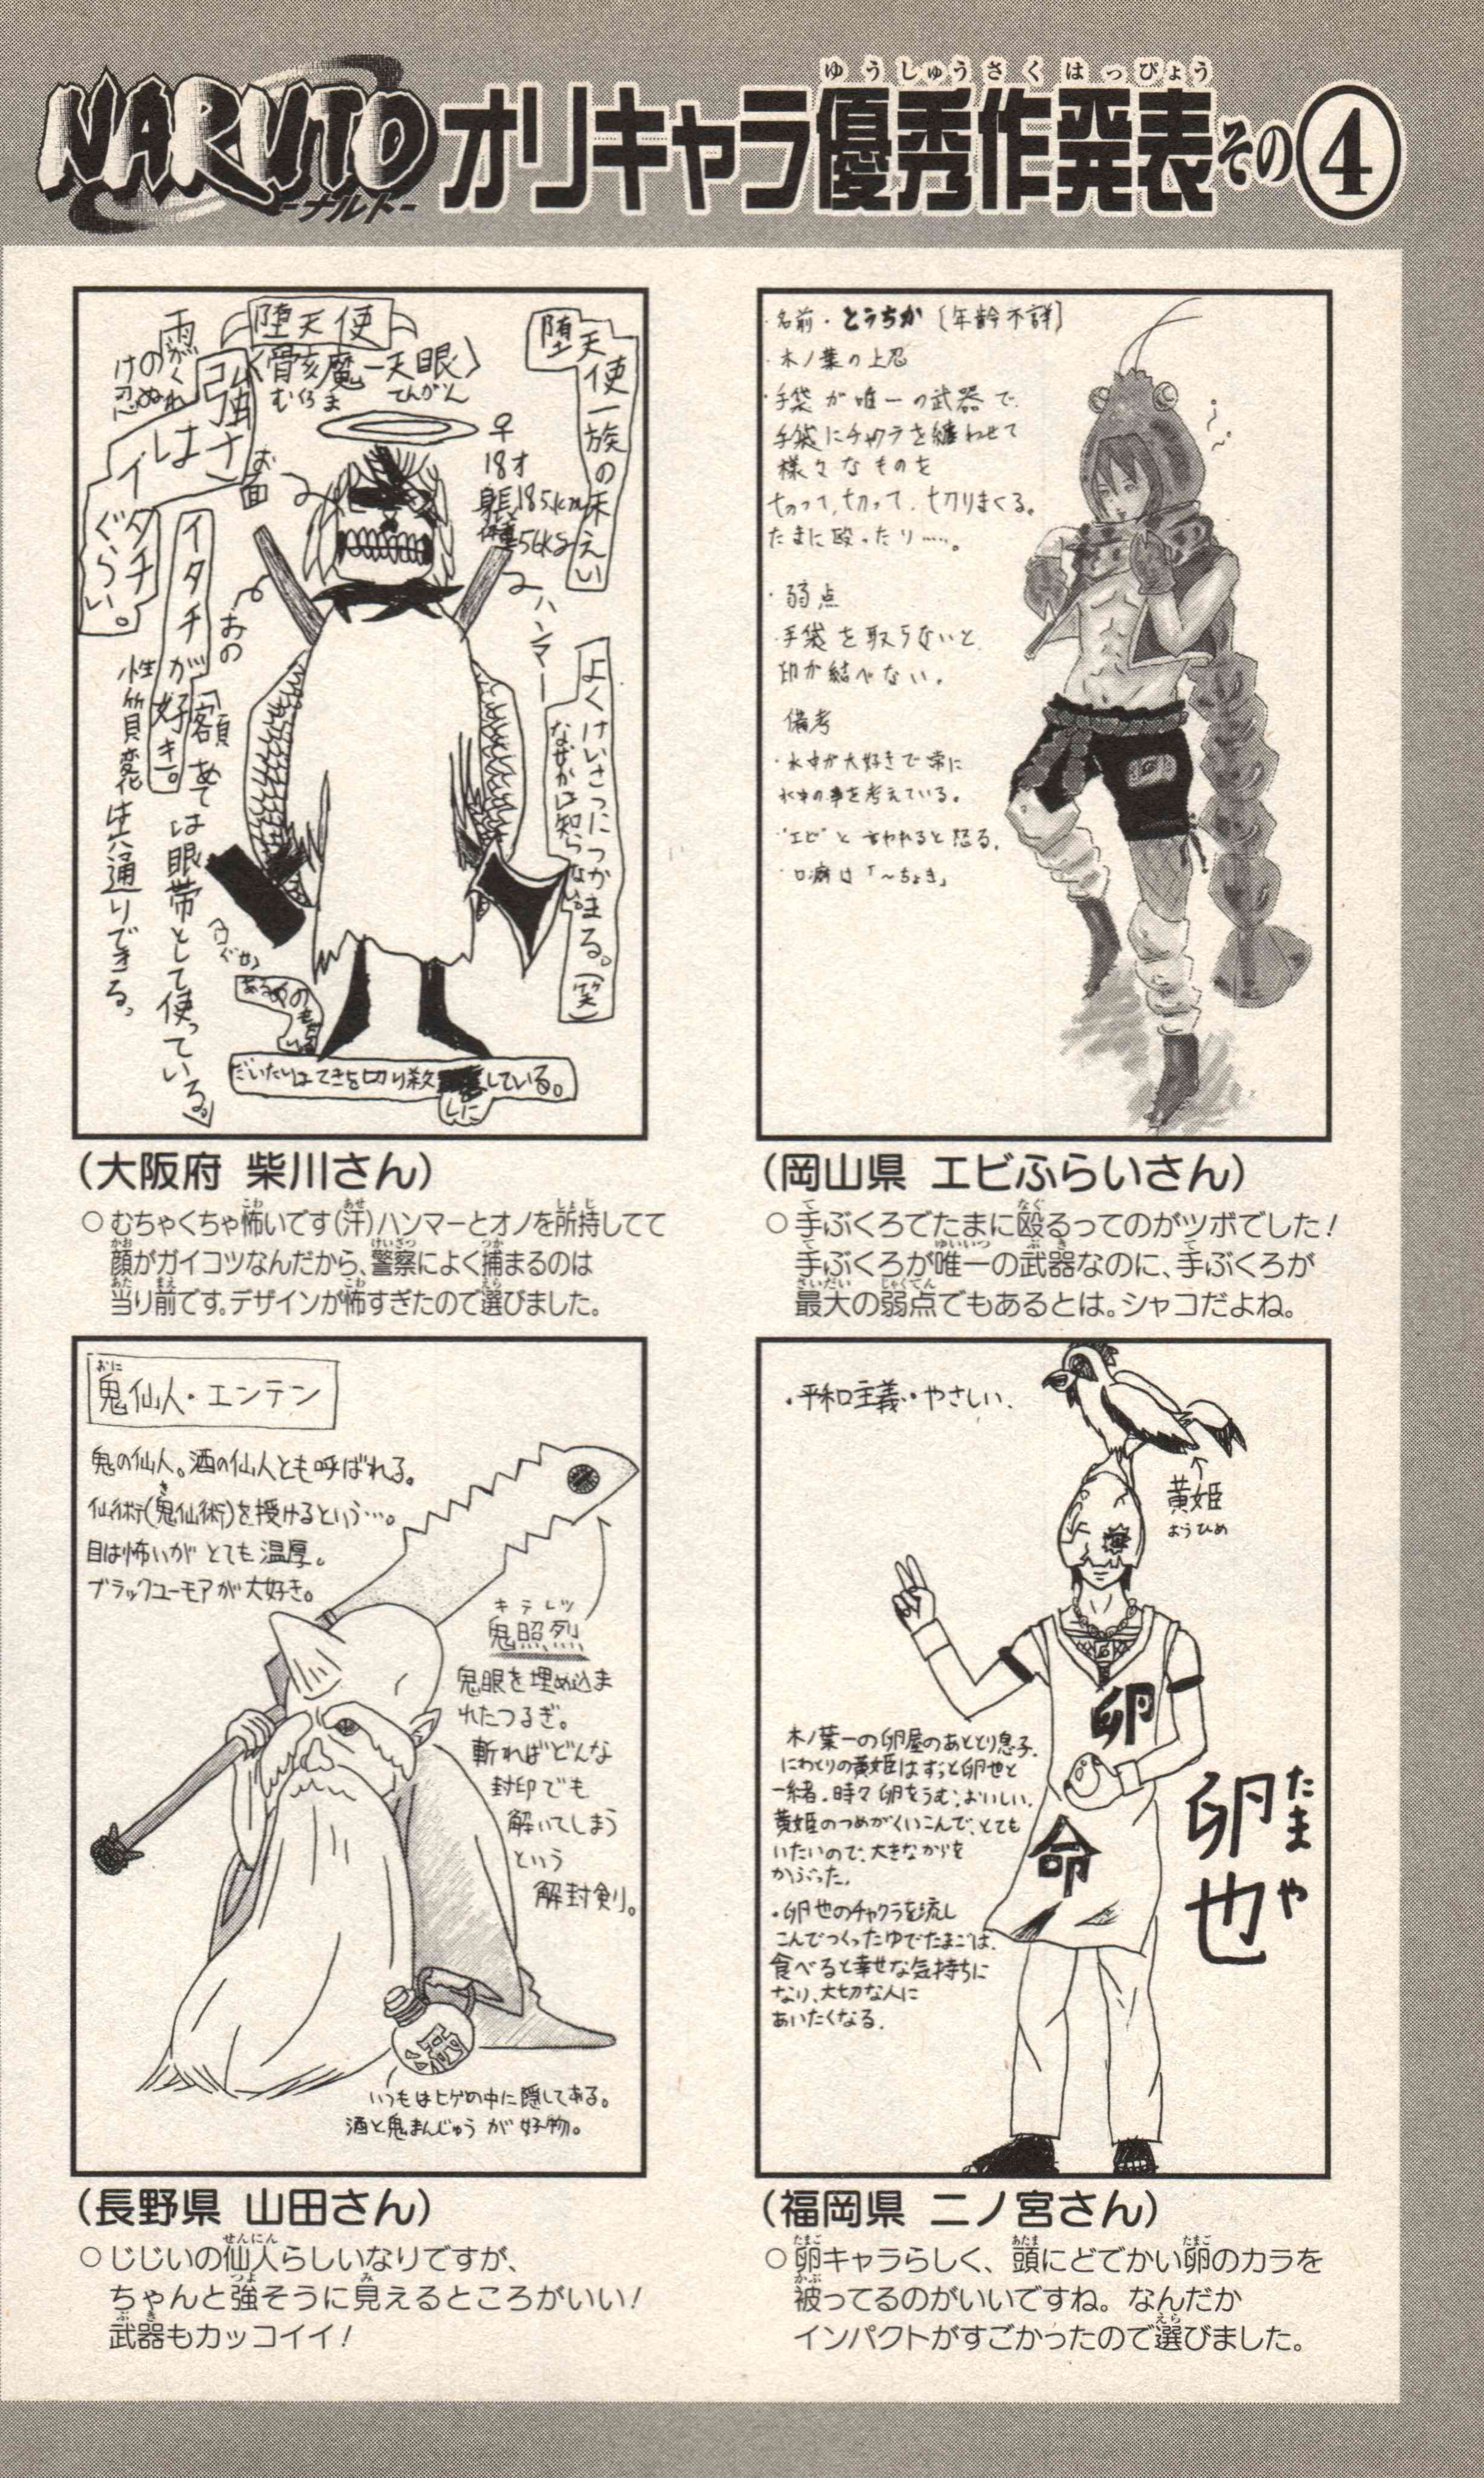 NARUTO
-ナルト-
オリキャラ優秀作発表その④
ゆうしゅうさくはっぴょう
堕天使
〈骸魔一天眼〉
むくろま てんがん
堕天使一族の末えい
雨がくれ
のぬけ忍
強さは
イタチ
ぐらい。
♀
18才
身長185cm
体重56kg
お面
おの
ハンマー
イタチが好き。
「額あては眼帯として使っている。」
性質変化は六通りできる。
よくけいさつにつかまる。(笑)
なぜかは知らない
だいたいはてきを切り殺しにしている。
(大阪府 柴川さん)
○むちゃくちゃ怖いです(汗)ハンマーとオノを所持してて
顔がガイコツなんだから、警察によく捕まるのは
当り前です。デザインが怖すぎたので選びました。
・名前・とうちか〔年齢不詳〕
・木ノ葉の上忍
・手袋が唯一の武器で、
手袋にチャクラを纏わせて
様々なものを
切って、切って、切りまくる。
たまに殴ったり……。
・弱点
・手袋を取らないと
印が結べない。
備考
・水中が大好きで常に
水中の事を考えている。
・"エビ"と言われると怒る。
・口癖は「~ちょき」
(岡山県 エビふらいさん)
○手ぶくろでたまに殴るってのがツボでした!
手ぶくろが唯一の武器なのに、手ぶくろが
最大の弱点でもあるとは。シャコだよね。
おに
鬼仙人・エンテン
鬼の仙人。酒の仙人とも呼ばれる。
仙術(鬼仙術)を授けるという…。
目は怖いがとても温厚。
ブラックユーモアが大好き。
キテレツ
鬼照烈
鬼眼を埋め込ま
れたつるぎ。
斬ればどんな
封印でも
解いてしまう
という
解封剣。
いつもはヒゲの中に隠してある。
酒と鬼まんじゅうが好物。
(長野県 山田さん)
○じじいの仙人らしいなりですが、
ちゃんと強そうに見えるところがいい!
武器もカッコイイ!
・平和主義・やさしい、
黄姫
ようひめ
卵
命
卵也
たまや
木ノ葉一の卵屋のあととり息子。
にわとりの黄姫はずっと卵也と
一緒。時々卵をうむ;おいしい。
黄姫のつめがくいこんで、とても
いたいので、大きなからを
かぶった。
・卵也のチャクラを流し
こんでつくったゆでたまごは、
食べると幸せな気持ちに
なり、大切な人に
あいたくなる。
(福岡県 二ノ宮さん)
○卵キャラらしく、頭にどでかい卵のカラを
被ってるのがいいですね。なんだか
インパクトがすごかったので選びました。